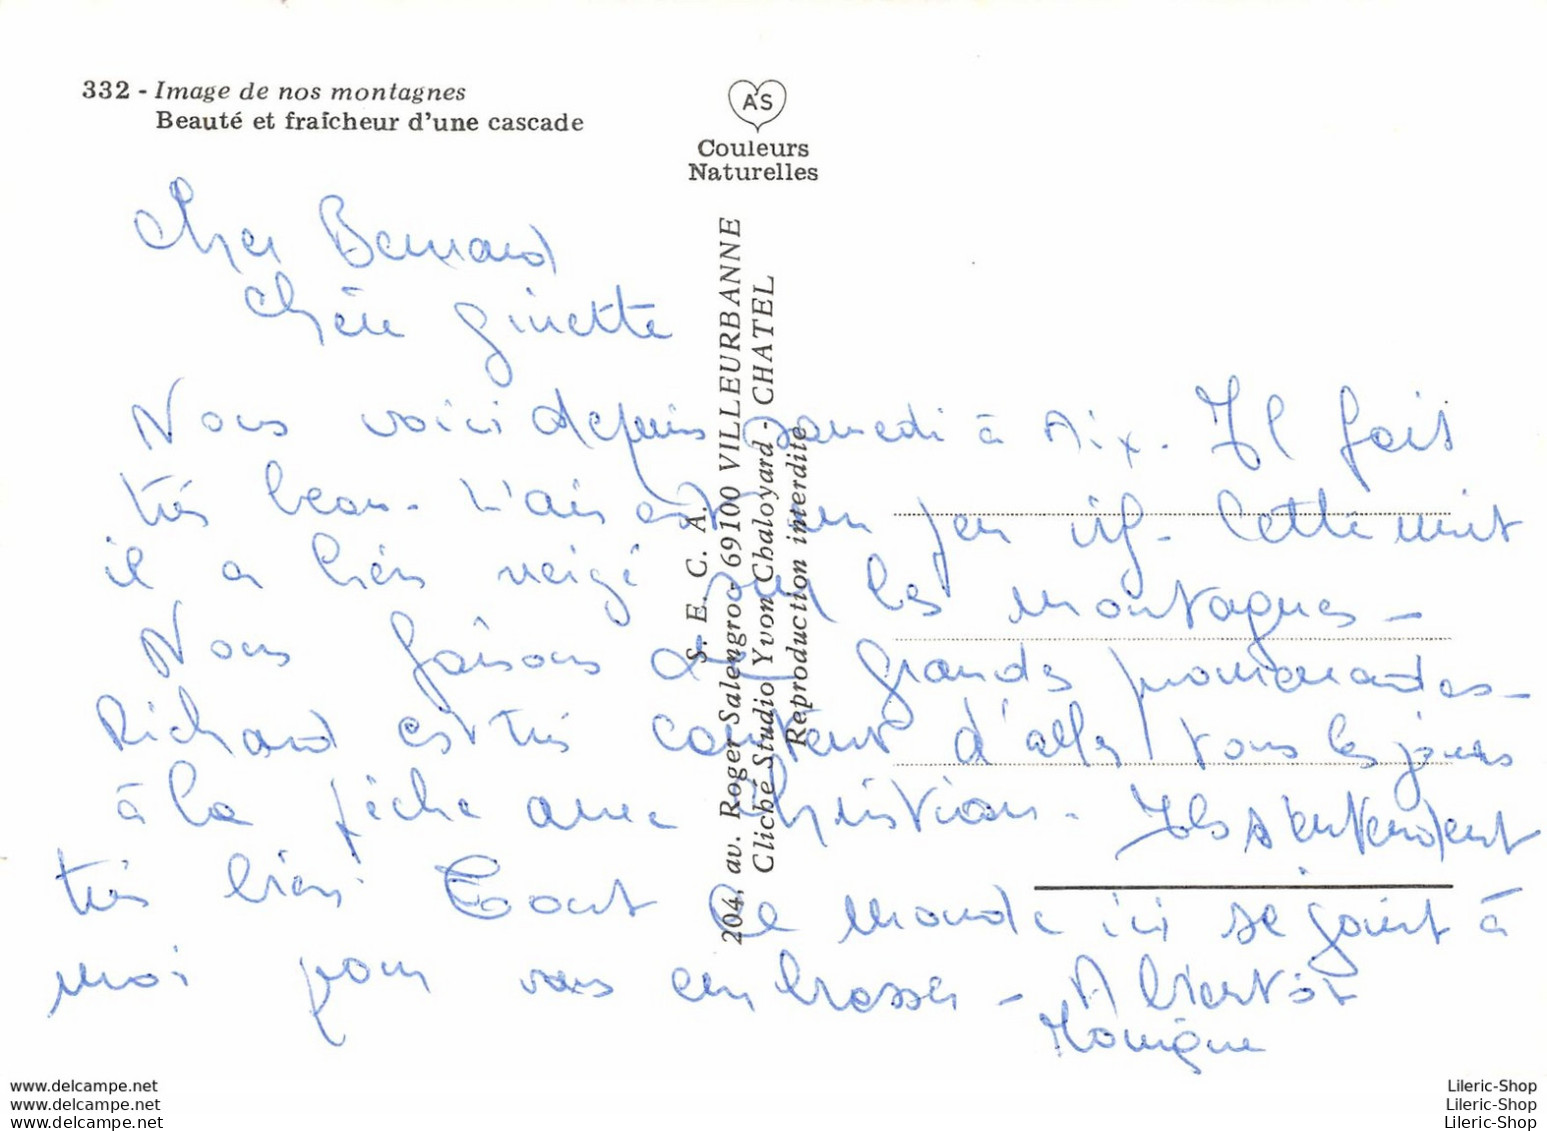 332 - Image de nos montagnes
Beauté et fraîcheur d'une cascade
A'S
Couleurs
Naturelles
S. E. C. A.
204, av. Roger Salengro - 69100 VILLEURBANNE
Cliché Studio Yvon Chaloyard - CHATEL
Reproduction interdite
Cher Bernard
Chère Ginette
Nous voici depuis samedi à Aix. Il fait
très beau. L'air est un peu vif. Cette nuit
il a bien neigé sur les montagnes -
Nous faisons de grandes promenades -
Richard est très content d'aller tous les jours
à la pêche avec Christian. Ils s'entendent
très bien. Tout le monde ici se joint à
moi pour vous embrasser - A bientôt
Monique
www.delcampe.net
www.delcampe.net
www.delcampe.net
Lileric-Shop
Lileric-Shop
Lileric-Shop